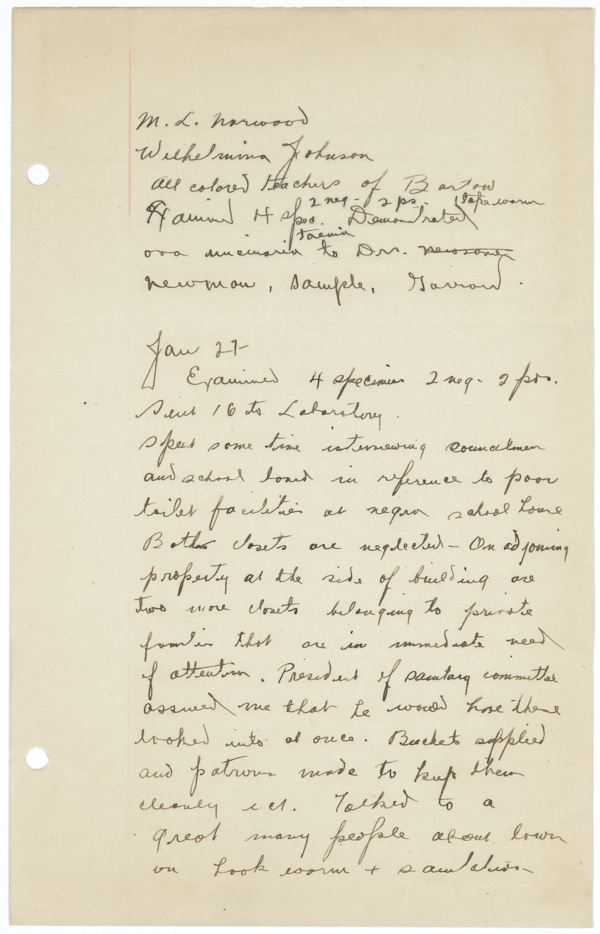 M. L. Norwood
Wilhelmina Johnson
All colored teachers of Bartow
2 neg - 2 ps. 1 tape worm
Examined 4 spec. Demonstrated
taenia
ova to Drs. Newsong
Newman, Sample, Garrard.
Jan 27
Examined 4 specimens 2 neg - 2 pos.
Sent 16 to Laboratory.
Spent some time interviewing councilmen
and school board in reference to poor
toilet facilities at negro school house
Both closets are neglected - On adjoining
property at the side of building are
two more closets belonging to private
families that are in immediate need
of attention. President of sanitary committee
assured me that he would have these
looked into at once. Buckets supplied
and patrons made to keep them
cleanly ect. Talked to a
great many people about town
on hook worm + sanitation